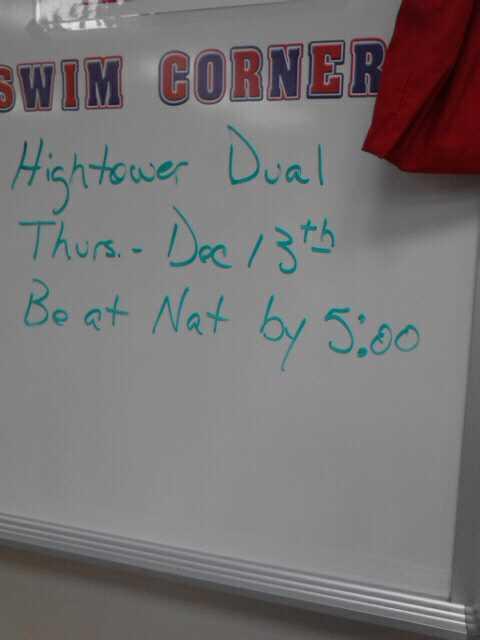 SWIM CORNER
Hightower Dual
Thurs. - Dec 13th
Be at Nat by 5:00